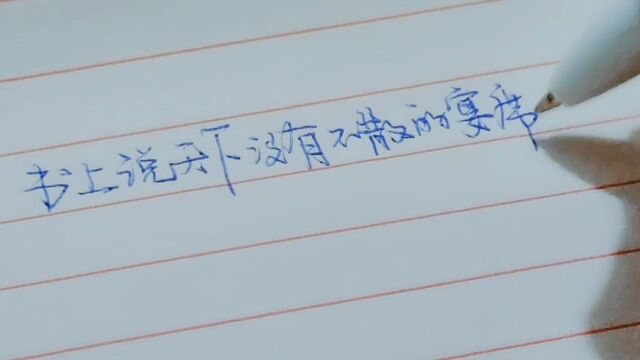 书上说天下没有不散的宴席